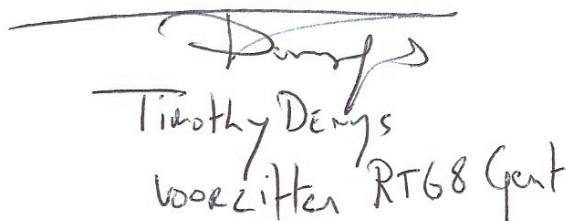 Timothy Denys
voorzitter RT68 Gent